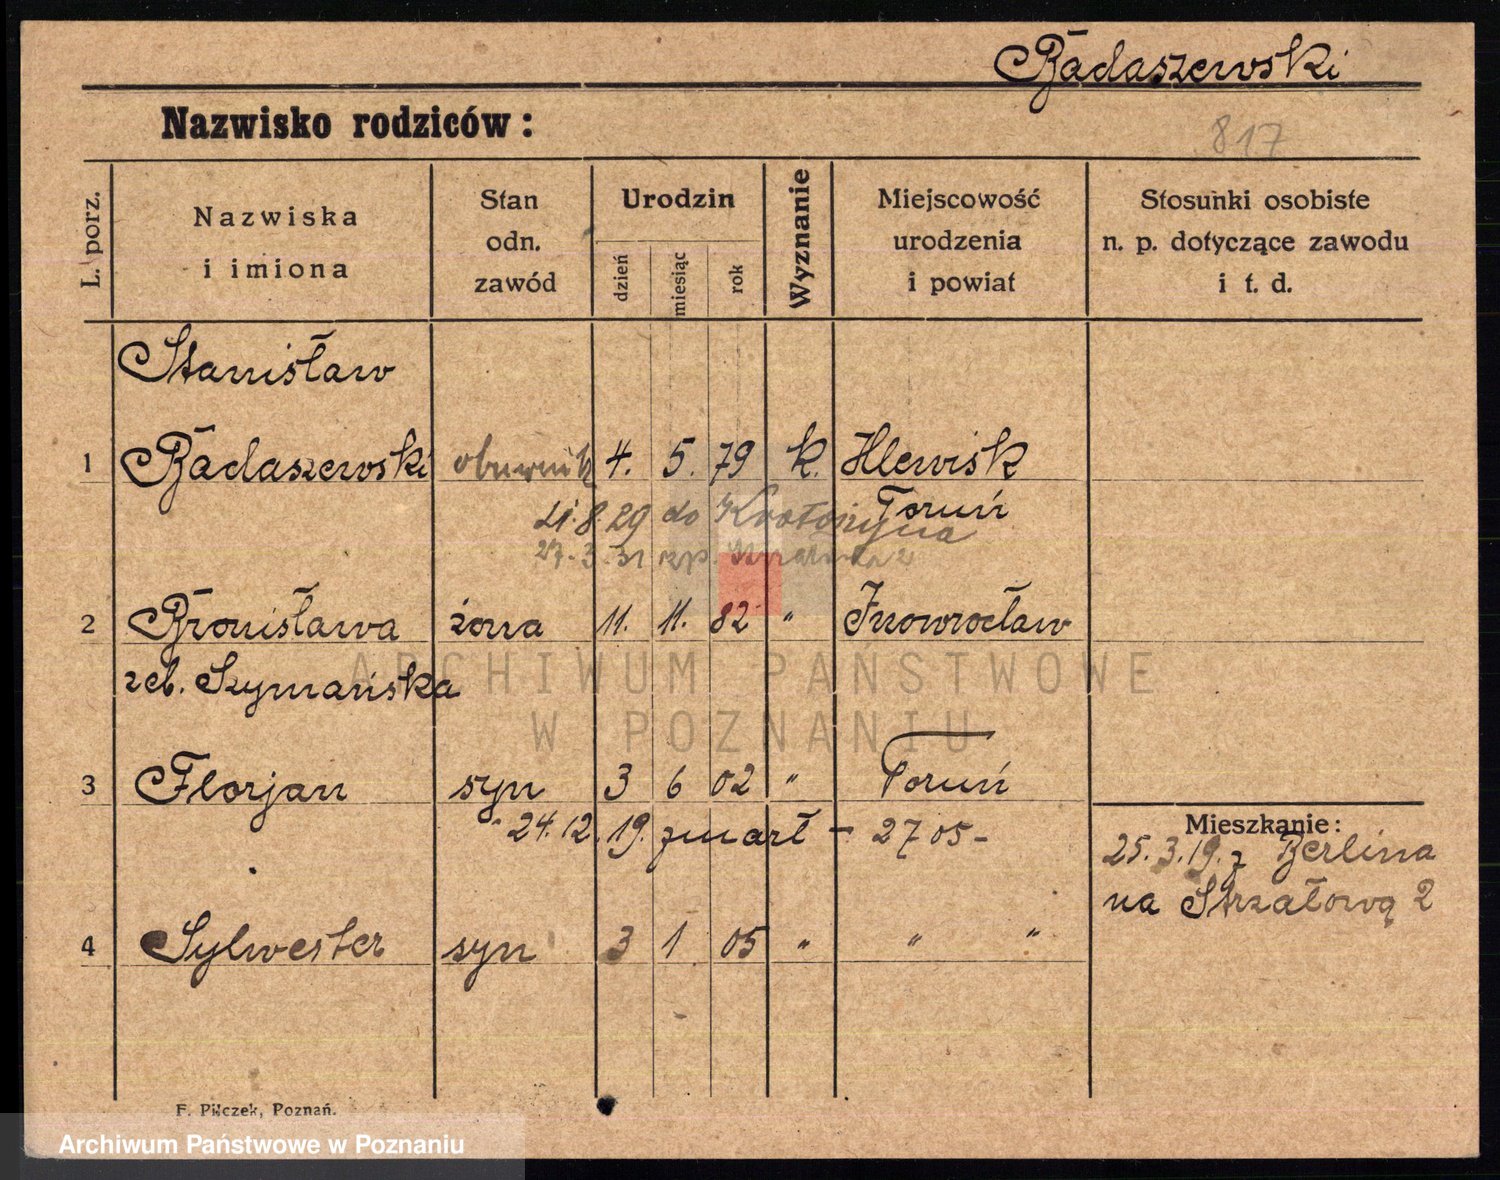 Badaszewski
Nazwisko rodziców:
817
L. porz.
Nazwiska
i imiona
Stan
odn.
zawód
Urodzin
dzień
miesiąc
rok
Wyznanie
Miejscowość
urodzenia
i powiat
Stosunki osobiste
n. p. dotyczące zawodu
i t. d.
Stanisław
1 Badaszewski obuwnik 4. 5. 79 k. Hlewisk
Toruń
21.8.29 do Krotoszyna
27.3.31
2 Bronisława żona 11. 11. 82 " Inowrocław
zeb. Szymańska
3 Florjan syn 3 6 02 " Toruń
24.12.19. zmarł - 27 05-
Mieszkanie:
25.3.19. z Berlina
na Strzałową 2
4 Sylwester syn 3 1 05 " " "
F. Pilczek, Poznań.
ARCHIWUM PAŃSTWOWE
W POZNANIU
Archiwum Państwowe w Poznaniu